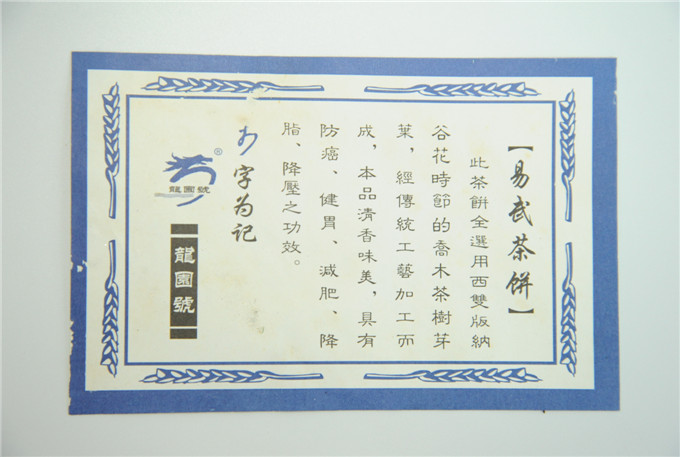 【易武茶餅】
此茶餅全選用西雙版納
谷花時節的喬木茶樹芽
葉，經傳統工藝加工而
成，本品清香味美，具有
防癌、健胃、減肥、降
脂、降壓之功效。
字为记
®
龍園號
龍園號